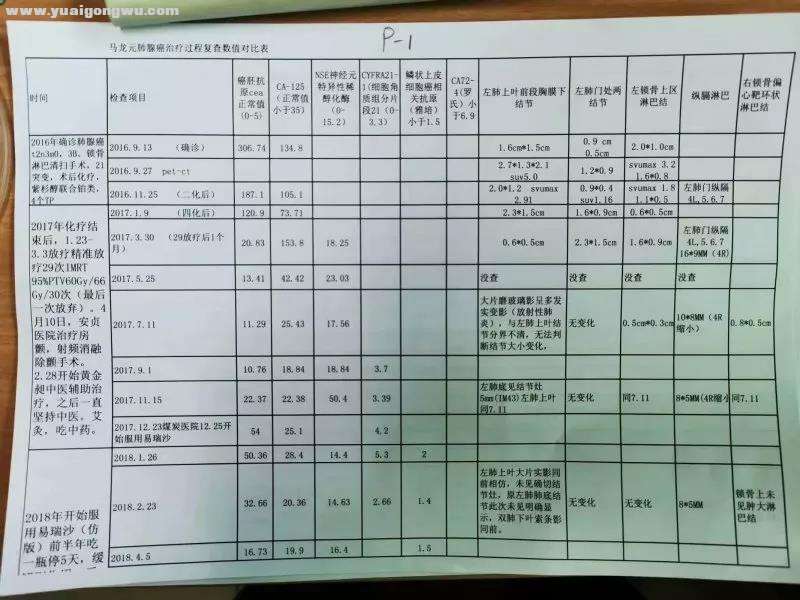 www.yuaigongwu.com
P-1
马龙元肺腺癌治疗过程复查数值对比表
时间 检查项目 癌胚抗原cea正常值(0-5) CA-125(正常值小于35) NSE神经元特异性稀醇化酶(0-15.2) CYFRA21-1(细胞角质组分片段21(0-3.3) 鳞状上皮细胞癌相关抗原(雅培)小于1.5 CA72-4(罗氏)小于6.9 左肺上叶前段胸膜下结节 左肺门处两结节 左锁骨上区淋巴结 纵膈淋巴 右锁骨偏心靶环状淋巴结
2016年确诊肺腺癌t2n3m0，3B、锁骨淋巴清扫手术，21突变，术后化疗，紫杉醇联合铂类，4个TP
2016.9.13 （确诊） 306.74 134.8 1.6cm*1.5cm 0.9 cm 0.5cm 2.0*1.0cm
2016.9.27 pet-ct 2.7*1.3*2.1 suv5.0 1.2*0.9 svumax 3.2 1.6*0.8
2016.11.25 （二化后） 187.1 105.1 2.0*1.2 svumax 2.91 0.9*0.4 suv1.16 svumax 1.8 1.1*0.5 左肺门纵隔4L,5.6.7
2017.1.9 （四化后） 120.9 73.71 2.3*1.5cm 1.6*0.9cm 0.6*0.5cm
2017年化疗结束后，1.23-3.3放疗精准放疗29次IMRT 95%PTV60Gy/66Gy/30次（最后一次放弃）。4月10日，安贞医院治疗房颤，射频消融除颤手术。
2.28开始黄金昶中医辅助治疗，之后一直坚持中医，艾灸，吃中药。
2017.3.30 （29放疗后1个月） 20.83 153.8 18.25 0.6*0.5cm 2.3*1.5cm 1.6*0.9cm 左肺门纵隔4L,5.6.7 16*9MM（4R）
2017.5.25 13.41 42.42 23.03 没查 没查 没查 没查
2017.7.11 11.29 25.43 17.56 大片磨玻璃影呈多发实变影（放射性肺炎），与左肺上叶结节分界不清，无法判断结节大小变化， 无变化 0.5cm*0.3cm 10*8MM（4R缩小） 0.8*0.5cm
2017.9.1 10.76 18.84 18.84 3.7
2017.11.15 22.37 22.38 50.4 3.39 左肺底见结节灶5mm(IM43)左肺上叶同7.11 无变化 同7.11 8*5MM(4R缩小 同7.11
2017.12.23煤炭医院12.25开始服用易瑞沙 54 25.1 4.2
2018.1.26 50.36 28.4 14.4 5.3 2
2018年开始服用易瑞沙（仿版）前半年吃一瓶停5天，缓
2018.2.23 32.66 20.36 14.63 2.66 1.4 左肺上叶大片实影同前相仿，未见确切结节灶，原左肺肺底结节此次未见明确显示，双肺下叶素条影同前。 无变化 无变化 8*5MM 锁骨上未见肿大淋巴结
2018.4.5 16.73 19.9 16.4 1.5